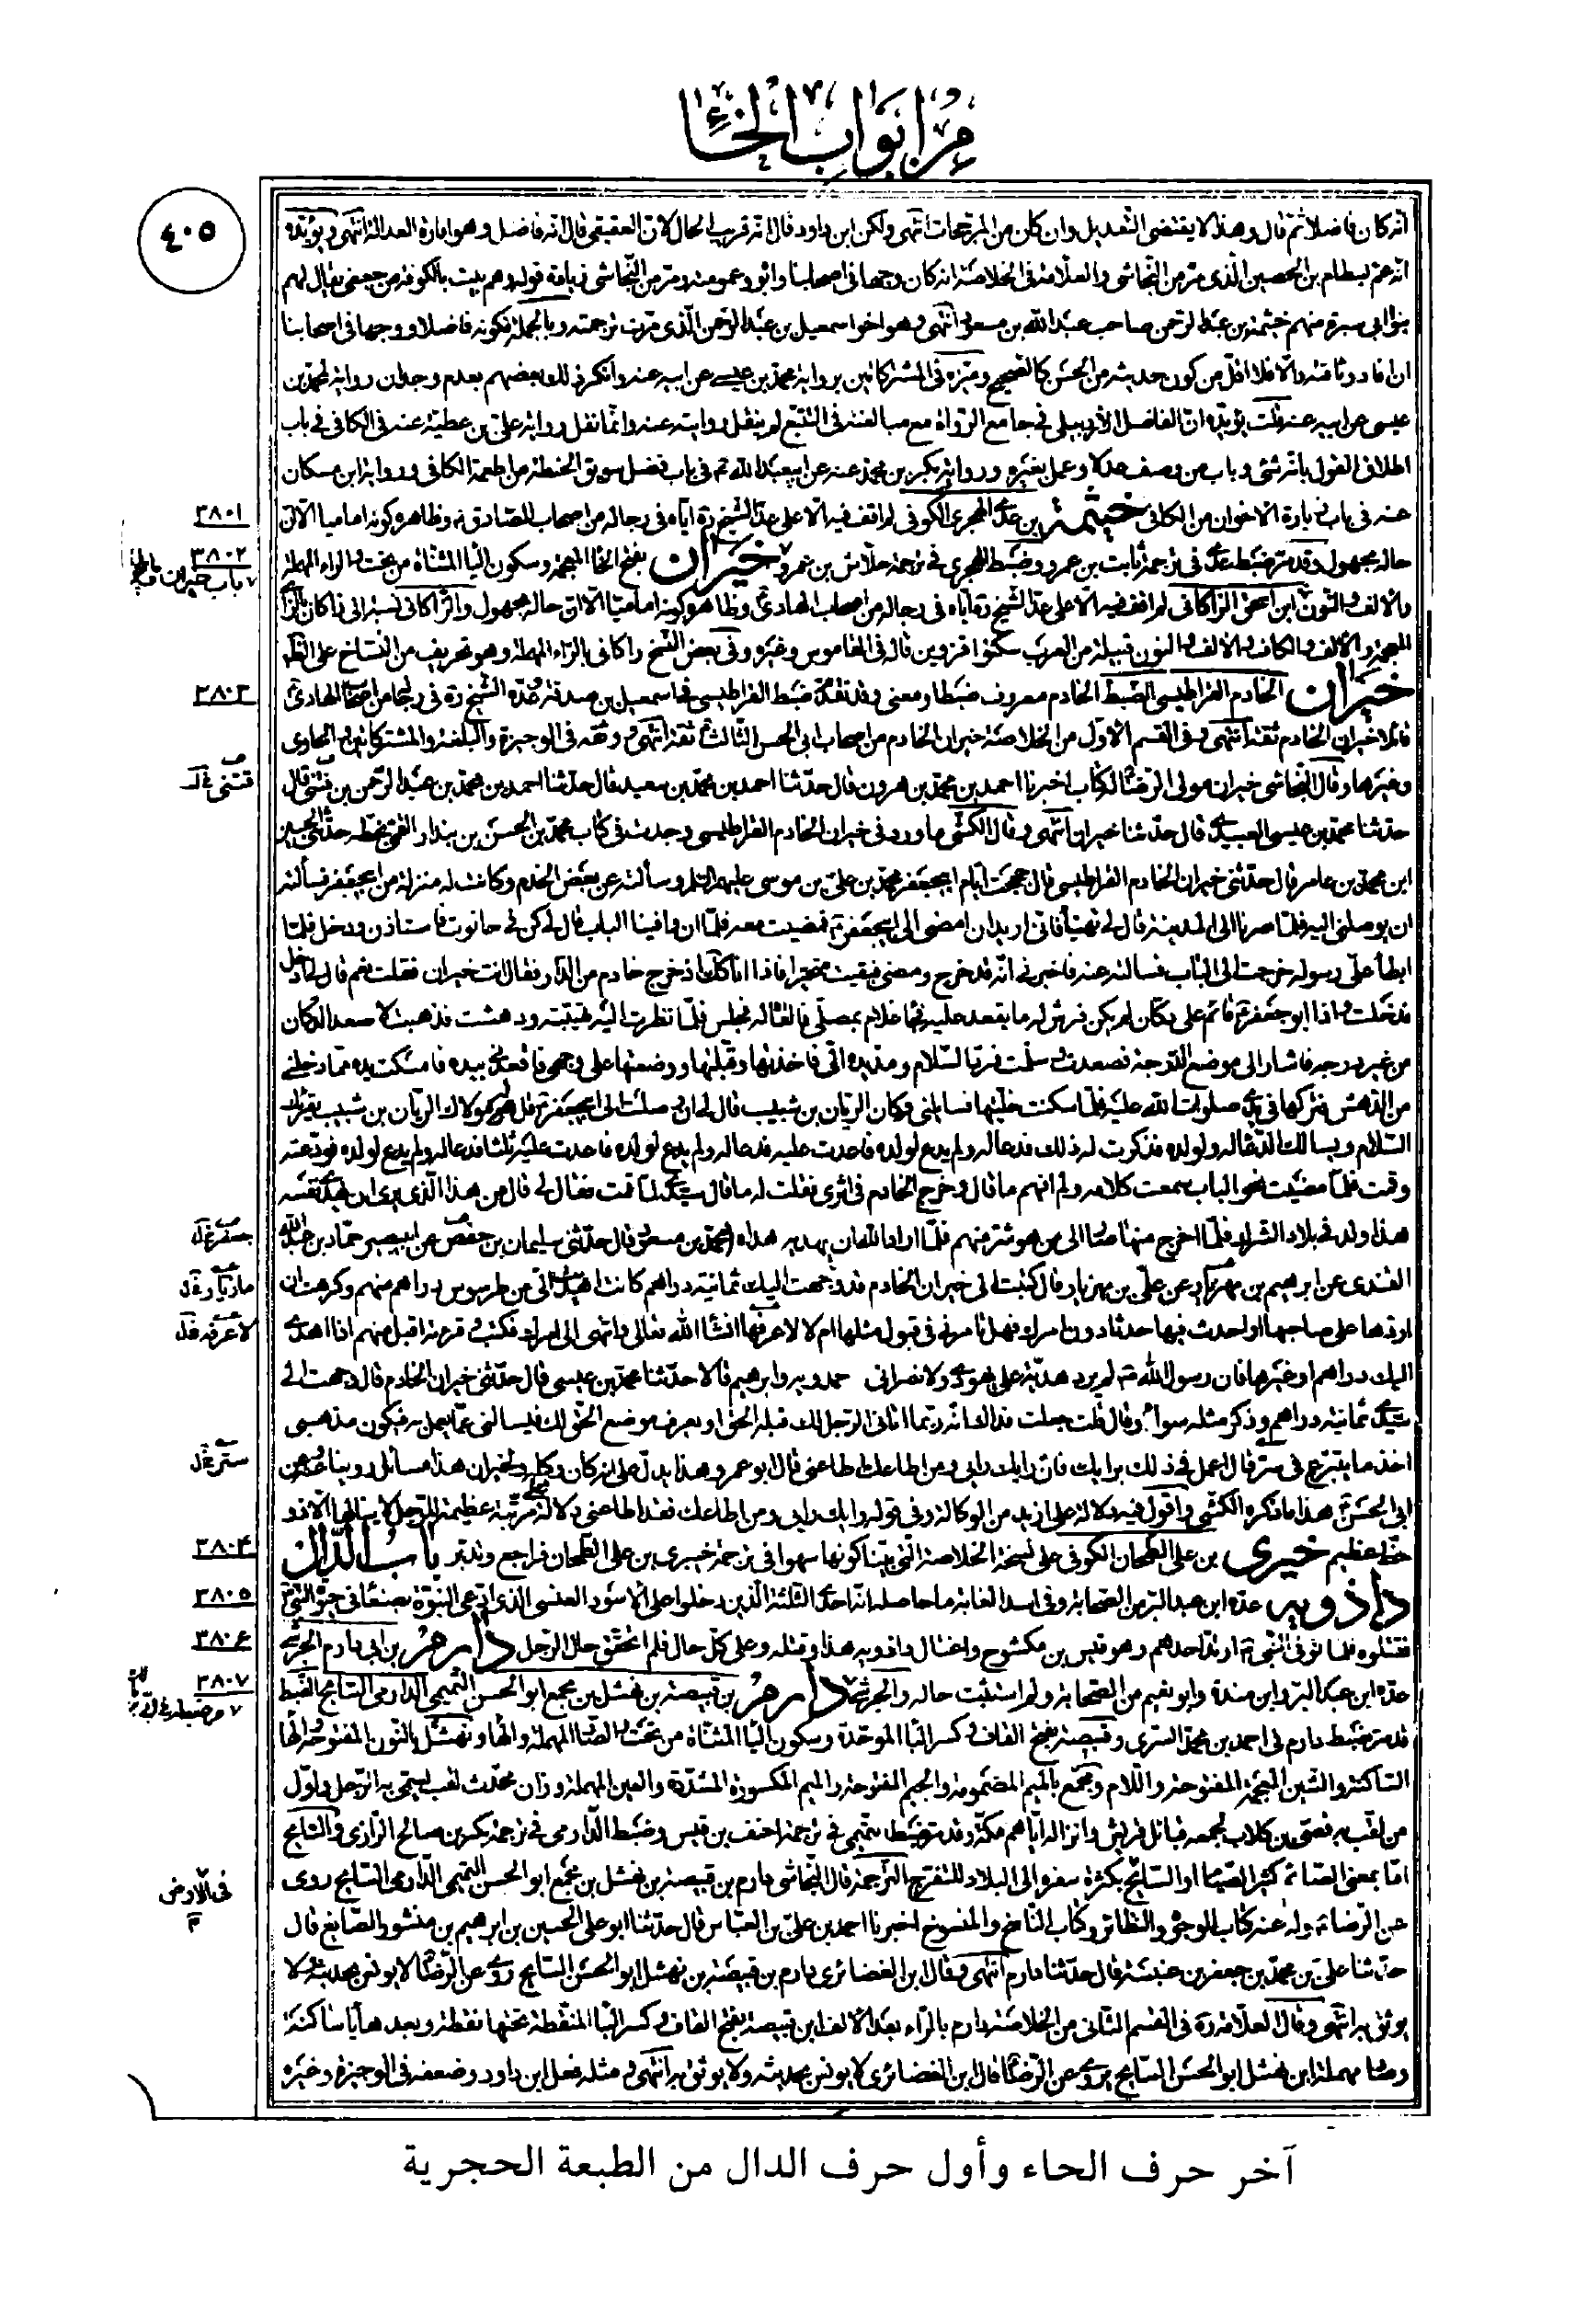 من ابواب الخاء
٤٠٥
انّه كان فاضلا ثم قال وهذا لا يقتضى التّعديل وان كان من المرجّحات انتهى ولكن ابن داود قال انّه قريب الحال لانّ العقيقى قال انّه فاضل وهو امارة العدالة انتهى ويؤيّده
انّه عمّ بسطام بن الحصين الّذى مرّ من النّجاشى والعلّامة فى الخلاصة انه كان وجها فى اصحابنا وابوه وعمومته ومرّ من النّجاشى زيادة قوله وهم بيت بالكوفة من جعفى يقال لهم
بنو ابى سبرة منهم خيثمة بن عبد الرّحمن صاحب عبد الله بن مسعود انتهى وهو اخو اسمعيل بن عبد الرّحمن الّذى مرّت ترجمته وبالجملة فكونه فاضلا ووجها فى اصحابنا
ان افاد وثاقته والّا فلا اقلّ من كون حديثه من الحسن كالصّحيح وميّزه فى المشتركاتين برواية محمّد بن عيسى عن ابيه عنه وانكر ذلك بعضهم بعدم وجدان رواية لمحمّد بن
عيسى عن ابيه عنه قلت يؤيّده انّ الفاضل الأردبيلى فى جامع الرّواة مع مبالغته فى التتبّع لم ينقل روايته عنه وانّما نقل رواية علىّ بن عطيّة عنه فى الكافى فى باب
اطلاق القول بانّه شئ وباب من وصف عدلا وعمل بغيره ورواية بكر بن محمّد عنه عن ابيعبد الله ع فى باب فضل سويق الحنطة من اطعمة الكافى ورواية ابن مسكان
عنه فى باب زيارة الاخوان من الكافى خيثمة بن عدىّ الهجرى الكوفى لم اقف فيه الّا على عدّ الشّيخ ره ايّاه فى رجاله من اصحاب الصّادق ع وظاهره كونه اماميا الّا انّ
٣٨٠١
حاله مجهول وقد مرّ ضبط عدىّ فى ترجمة ثابت بن عمرو وضبط الهجرى فى ترجمة حلاش بن عمرو خيران بفتح الخاء المعجمة وسكون الياء المثنّاة من تحت والراء المهملة
٣٨٠٢
باب خيران
والالف والنّون ابن اسحق الزّاكانى لم اقف فيه الّا على عدّ الشّيخ ره ايّاه فى رجاله من اصحاب الهادى ع وظاهره كونه اماميّا الّا انّ حاله مجهول والزّاكانى نسبة الى زاكان بالزّاى
المعجمة والألف والكاف والالف والنون قبيلة من العرب سكنوا قزوين قاله فى القاموس وغيره وفى بعض النّسخ راكانى بالرّاء المهملة وهو تحريف من النّسّاخ على الظّاهر
خيران الخادم القراطيسى الضّبط الخادم معروف ضبطا ومعنى وقد تقدّم ضبط القراطيسى فى اسمعيل بن صدقة عدّه الشّيخ ره فى رجاله من اصحاب الهادى ع
٣٨٠٣
قائلا خيران الخادم ثقة انتهى وفى القسم الأوّل من الخلاصة خيران الخادم من اصحاب ابى الحسن الثّالث ع ثقة انتهى ووثّقه فى الوجيزة والبلغة والمشتركاتين والحاوى
وغيرها وقال النّجاشى خيران مولى الرّضا ع له كتاب اخبرنا احمد بن محمّد بن هرون قال حدّثنا احمد بن محمّد بن سعيد قال حدّثنا احمد بن محمّد بن عبد الرّحمن بن فتنى قال
قتنى خ ل
حدّثنا محمّد بن عيسى العبيدى قال حدّثنا خيران انتهى وقال الكشّى ما ورد فى خيران الخادم القراطيسى وجدت فى كتاب محمّد بن الحسن بن بندار القمّى بخطّه حدّثنى الحسين
ابن محمّد بن عامر قال حدّثنى خيران الخادم القراطيسى قال حججت ايّام ابيجعفر محمّد بن علىّ بن موسى عليهم السّلم وسألته عن بعض الخدم وكانت له منزلة من ابيجعفر فسألته
ان يوصلنى اليه فلمّا صرنا الى المدينة قال لى تهيّأ فانّى اريد ان امضى الى ابيجعفر ع فمضيت معه فلمّا ان وافينا الباب قال لى كن فى حانوت فاستاذن ودخل فلمّا
ابطأ علىّ رسوله خرجت الى الباب فسالته عنه فاخبرنى انّه قد خرج ومضى فبقيت متحيّرا فاذا انا كذلك اذ خرج خادم من الدّار فقال انت خيران فقلت نعم قال لى ادخل
فدخلت واذا ابو جعفر ع قائم على دكّان لم يكن فرش له ما يقعد عليه فجاء غلام بمصلّى فالقاه له فجلس فلمّا نظرت اليه هيبته ودهشت فذهبت لاصعد الدكان
من غير درجة فاشار الى موضع الدّرجة فصعدت وسلّمت فردّ السّلام ومدّ يده الىّ فاخذتها وقبّلتها ووضعتها على وجهى فاقعدنى بيده فامسكت يده ممّا دخلنى
من الدّهش فتركها فى يدى صلوات الله عليه فلمّا سكنت خلّيتها فسائلنى وكان الريّان بن شبيب قال لى ان وصلت الى ابيجعفر ع قل له مولاك الريّان بن شبيب يقرئك
السّلام ويسالك الدّعاء له ولولده فذكرت له ذلك فدعا له ولم يدع لولده فاعدت عليه فدعا له ولم يدع لولده فاعدت عليه ثلثا فدعا له ولم يدع لولده فودّعته
وقمت فلمّا مضيت نحو الباب سمعت كلامه ولم افهم ما قال وخرج الخادم فى اثرى فقلت له ما قال سيّدى لمّا قمت فقال لى قال من هذا الّذى يرى ان يهدى نفسه
هذا ولد فى بلاد الشّرك فلمّا اخرج منها صار الى من هو شرّ منهم فلمّا اراد الله ان يهديه هداه محمّد بن مسعود قال حدّثنى سليمان بن حفص عن ابيبصير حمّاد بن عبد الله
جعفر خ ل
القندى عن ابرهيم بن مهزيار عن علىّ بن مهزيار قال كتبت الى خيران الخادم قد وجّهت اليك ثمانية دراهم كانت اهديت الىّ من طرسوس دراهم منهم وكرهت ان
مازيار خ ل
اردّها على صاحبها او احدث فيها حدثا دون امرك فهل تامرنى فى قبول مثلها ام لا لاعرفها انشاء الله تعالى وانتهى الى امرك فكتب وقرءته اقبل منهم اذا اهدى
لاعرفه خ ل
اليك دراهم او غيرها فان رسول الله ص لم يردّ هديّة على يهودى ولا نصرانى حمدويه وابرهيم قالا حدّثنا محمّد بن عيسى قال حدّثنى خيران الخادم قال وجّهت الى
سيّدى ثمانية دراهم وذكر مثله سواء وقال قلت جعلت فداك انّه ربّما اتانى الرّجل لك قبله الحقّ او يعرف موضع الحقّ لك فيسالنى عمّا يعمل به فيكون مذهبى
اخذ ما يتبرّع فى سرّ قال اعمل فى ذلك برايك فان رايك رايى ومن اطاعك اطاعنى قال ابو عمرو هذا يدلّ على انه كان وكيله ولخيران هذا مسائل رويها عنه وعن
ستر خ ل
ابى الحسن ع هذا ما ذكره الكشّى واقول فيه دلالة على ازيد من الوكالة وفى قوله رايك رايى ومن اطاعك فقد اطاعنى دلالة على مرتبة عظيمة للرّجل لا ينالها الّا ذو
حظّ عظيم خيرى بن على الطّحان الكوفى على نسخة الخلاصة الّتى بيّنّا كونها سهوا فى ترجمة خيبرى بن على الطّحان فراجع وتدبّر باب الدّال
٣٨٠٤
داذويه عدّه ابن عبد البرّ من الصّحابة وفى اسد الغابة ما حاصله انّه احد الثّلثة الّذين دخلوا على الاسود العنسى الّذى ادّعى النّبوّة بصنعاء فى حيوة النّبىّ ص
٣٨٠٥
فقتلوه فلمّا توفّى النّبىّ ص ارتدّ احدهم وهو قيس بن مكشوح واغتال داذويه هذا وقتله وعلى كلّ حال فلم اتحقّق حال الرّجل دارم بن ابى دارم الجرشى
٣٨٠٦
عدّه ابن عبد البرّ وابن مندة وابو نعيم من الصّحابة ولم استثبت حاله والجرشى دارم بن قبيصة بن نهشل بن مجمع ابو الحسن التّميمى الدارمى السّائح الضّبط
٣٨٠٧
قد مرّ ضبط دارم فى احمد بن محمّد السّرى وقبيصة بفتح القاف وكسر الباء الموحّدة وسكون الياء المثنّاة من تحت والصّاد المهملة والهاء ونهشل بالنّون المفتوحة والهاء
السّاكنة والشّين المعجمة المفتوحة واللّام ومجمّع بالميم المضمومة والجيم المفتوحة والميم المكسورة المشدّدة والعين المهملة وزان محدّث لقب يسمّى به الرّجل واوّل
من لقّب به قصىّ بن كلاب لجمعه قبائل قريش وانزاله ايّاهم مكّة وقد مرّ ضبط التميمى فى ترجمة احنف بن قيس وضبط الدّارمى فى ترجمة بكر بن صالح الرازى والسّايح
امّا بمعنى الصّائم كثير الصّيام او السّايح بكثرة سفره الى البلاد للتفرّج التّرجمة قال النّجاشى دارم بن قبيصة بن نهشل بن مجمّع ابو الحسن التّميمى الدّارمى السّايح روى
فى الارض
م
عن الرّضا ع وله عنه كتاب الوجوه والنّظائر وكتاب النّاسخ والمنسوخ اخبرنا احمد بن علىّ بن العبّاس قال حدّثنا ابو على الحسين بن ابرهيم بن منشور الصّائغ قال
حدّثنا علىّ بن محمّد بن جعفر بن عنبسة قال حدّثنا دارم انتهى وقال ابن الغضائرى دارم بن قبيصة بن نهشل ابو الحسن السّايح روى عن الرّضا ع لا يونس بحديثه ولا
يوثق به انتهى وقال العلّامة ره فى القسم الثّانى من الخلاصة دارم بالرّاء بعد الالف ابن قبيصة بفتح القاف وكسر الباء المنقّطة تحتها نقطة وبعدها ياء ساكنة
وصاد مهملة ابن نهشل ابو الحسن السّايح يروى عن الرّضا ع قال ابن الغضائرى لا يونس بحديثه ولا يوثق به انتهى ومثله فعل ابن داود وضعفه فى الوجيزة وغيره
آخر حرف الحاء وأول حرف الدال من الطبعة الحجرية